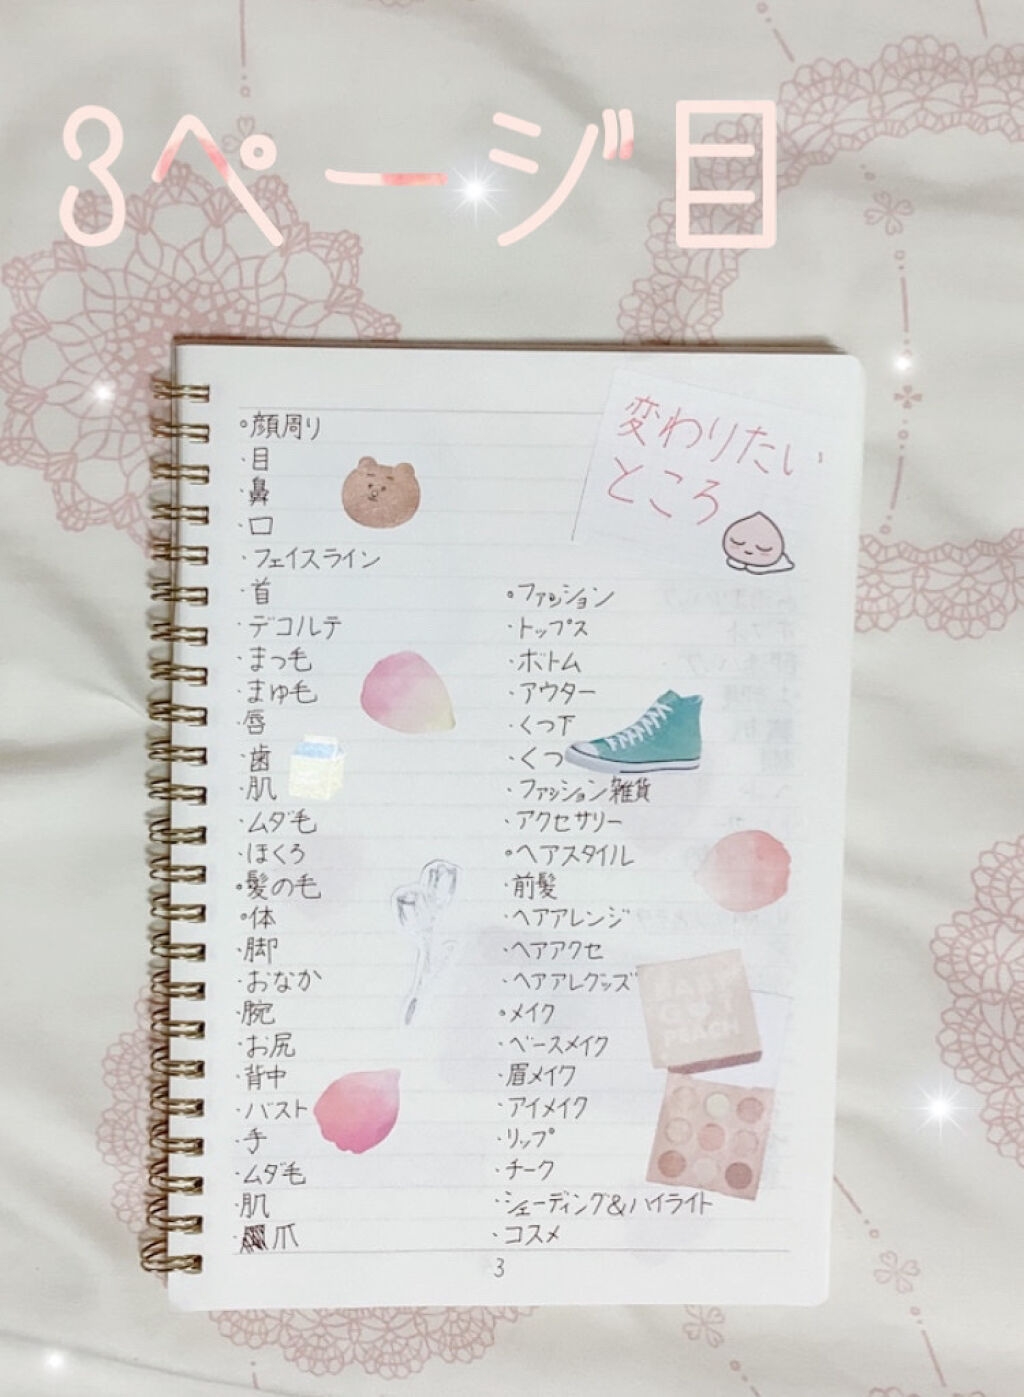 3ページ目
変わりたい
ところ
◦顔周り
·目
·鼻
·口
·フェイスライン
·首
·デコルテ
·まつ毛
·まゆ毛
·唇
·歯
·肌
·ムダ毛
·ほくろ
◦髪の毛
◦体
·脚
·おなか
·腕
·お尻
·背中
·バスト
·手
·ムダ毛
·肌
·爪
◦ファッション
·トップス
·ボトム
·アウター
·くつ下
·くつ
·ファッション雑貨
·アクセサリー
◦ヘアスタイル
·前髪
·ヘアアレンジ
·ヘアアクセ
·ヘアアレグッズ
◦メイク
·ベースメイク
·眉メイク
·アイメイク
·リップ
·チーク
·シェーディング&ハイライト
·コスメ
3